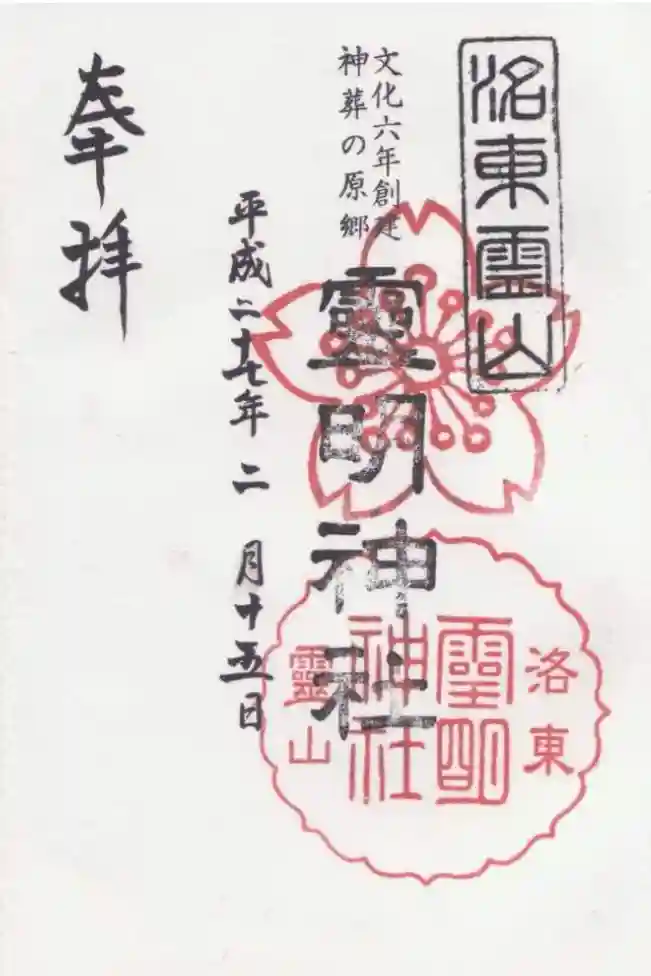 洛東霊山
文化六年創建
神葬の原郷
靈明神社
洛東
靈明
神社
靈山
平成二十七年二月十五日
奉拝